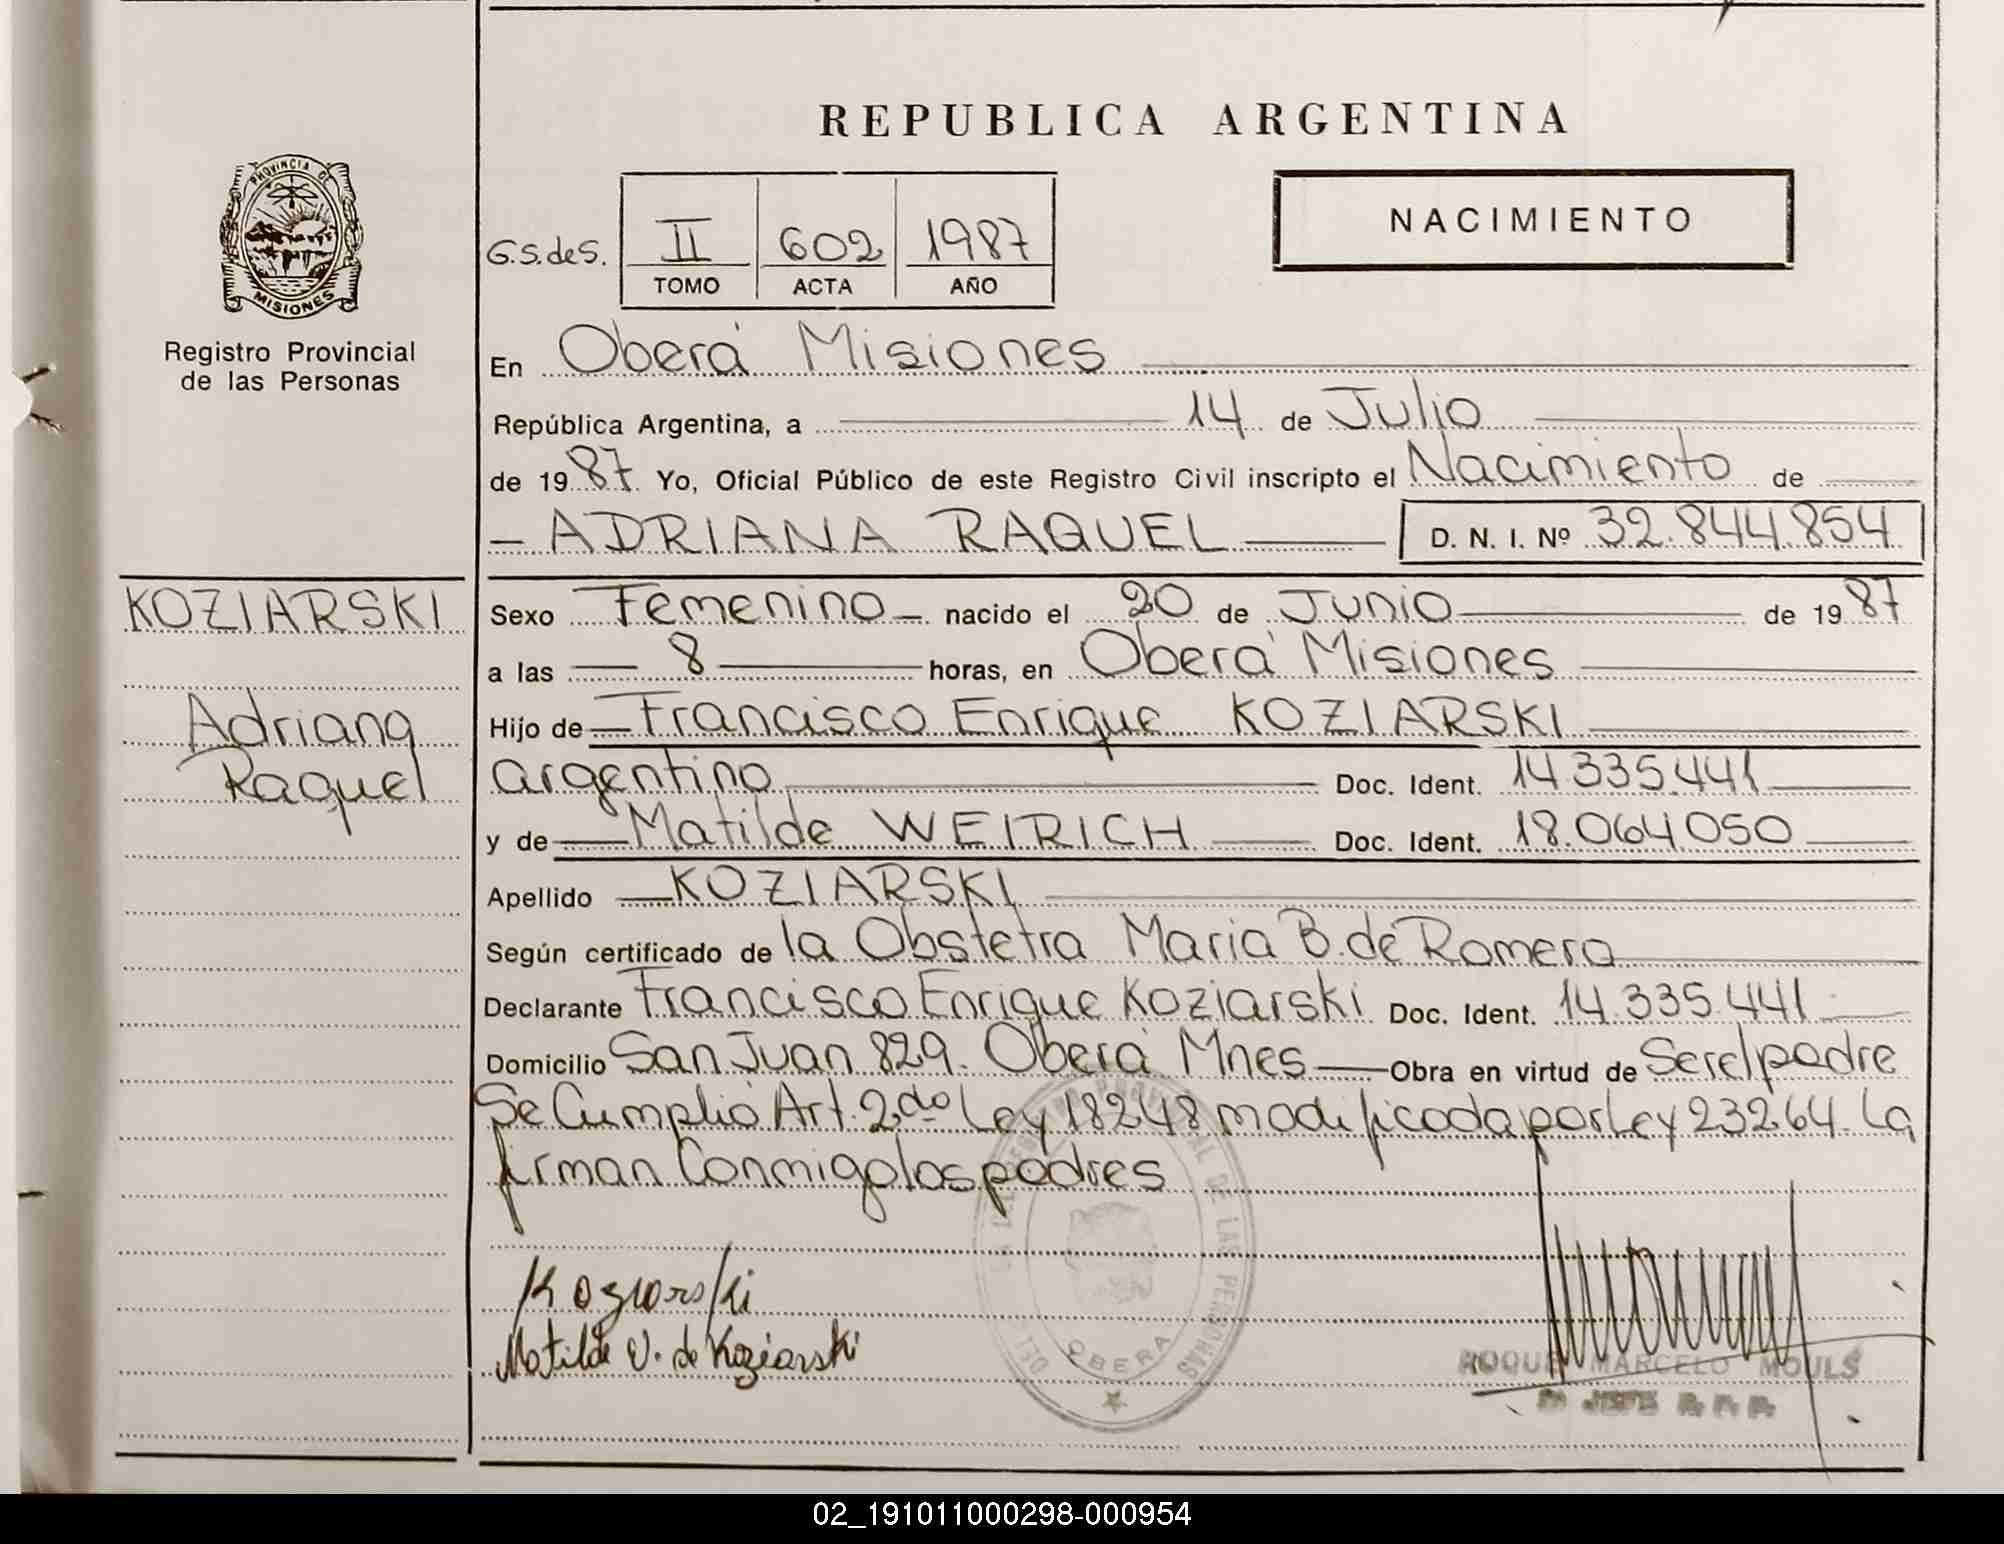 REPUBLICA ARGENTINA
PROVINCIA DE
MISIONES
Registro Provincial
de las Personas
G.S.deS. II 602 1987
TOMO ACTA AÑO
NACIMIENTO
En Oberá Misiones
República Argentina, a 14 de Julio
de 1987 Yo, Oficial Público de este Registro Civil inscripto el Nacimiento de
- ADRIANA RAQUEL D. N. I. Nº 32.844.854
KOZIARSKI
Adriana
Raquel
Sexo Femenino nacido el 20 de Junio de 1987
a las 8 horas, en Oberá Misiones
Hijo de Francisco Enrique KOZIARSKI
argentino Doc. Ident. 14.335.441
y de Matilde WEIRICH Doc. Ident. 18.064.050
Apellido KOZIARSKI
Según certificado de la Obstetra Maria B. de Romero
Declarante Francisco Enrique Koziarski Doc. Ident. 14.335.441
Domicilio San Juan 829. Oberá Mnes Obra en virtud de Ser el padre
Se Cumplió Art. 2do Ley 18248 modificada por Ley 23264. La
firman Conmigo los padres
Koziarski
Matilde V. de Koziarski
DE LAS PERSONAS
OBERA
DEL
ROQUE MARCELO MOULS
JEFE R. P. P.
02_191011000298-000954